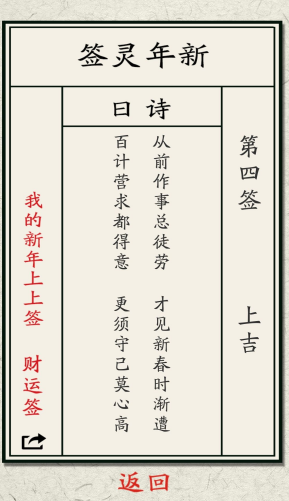 新年灵签
诗曰
第四签 上吉
从前作事总徒劳 才见新春时渐遭
百计营求都得意 更须守己莫心高
我的新年上上签 财运签
返回